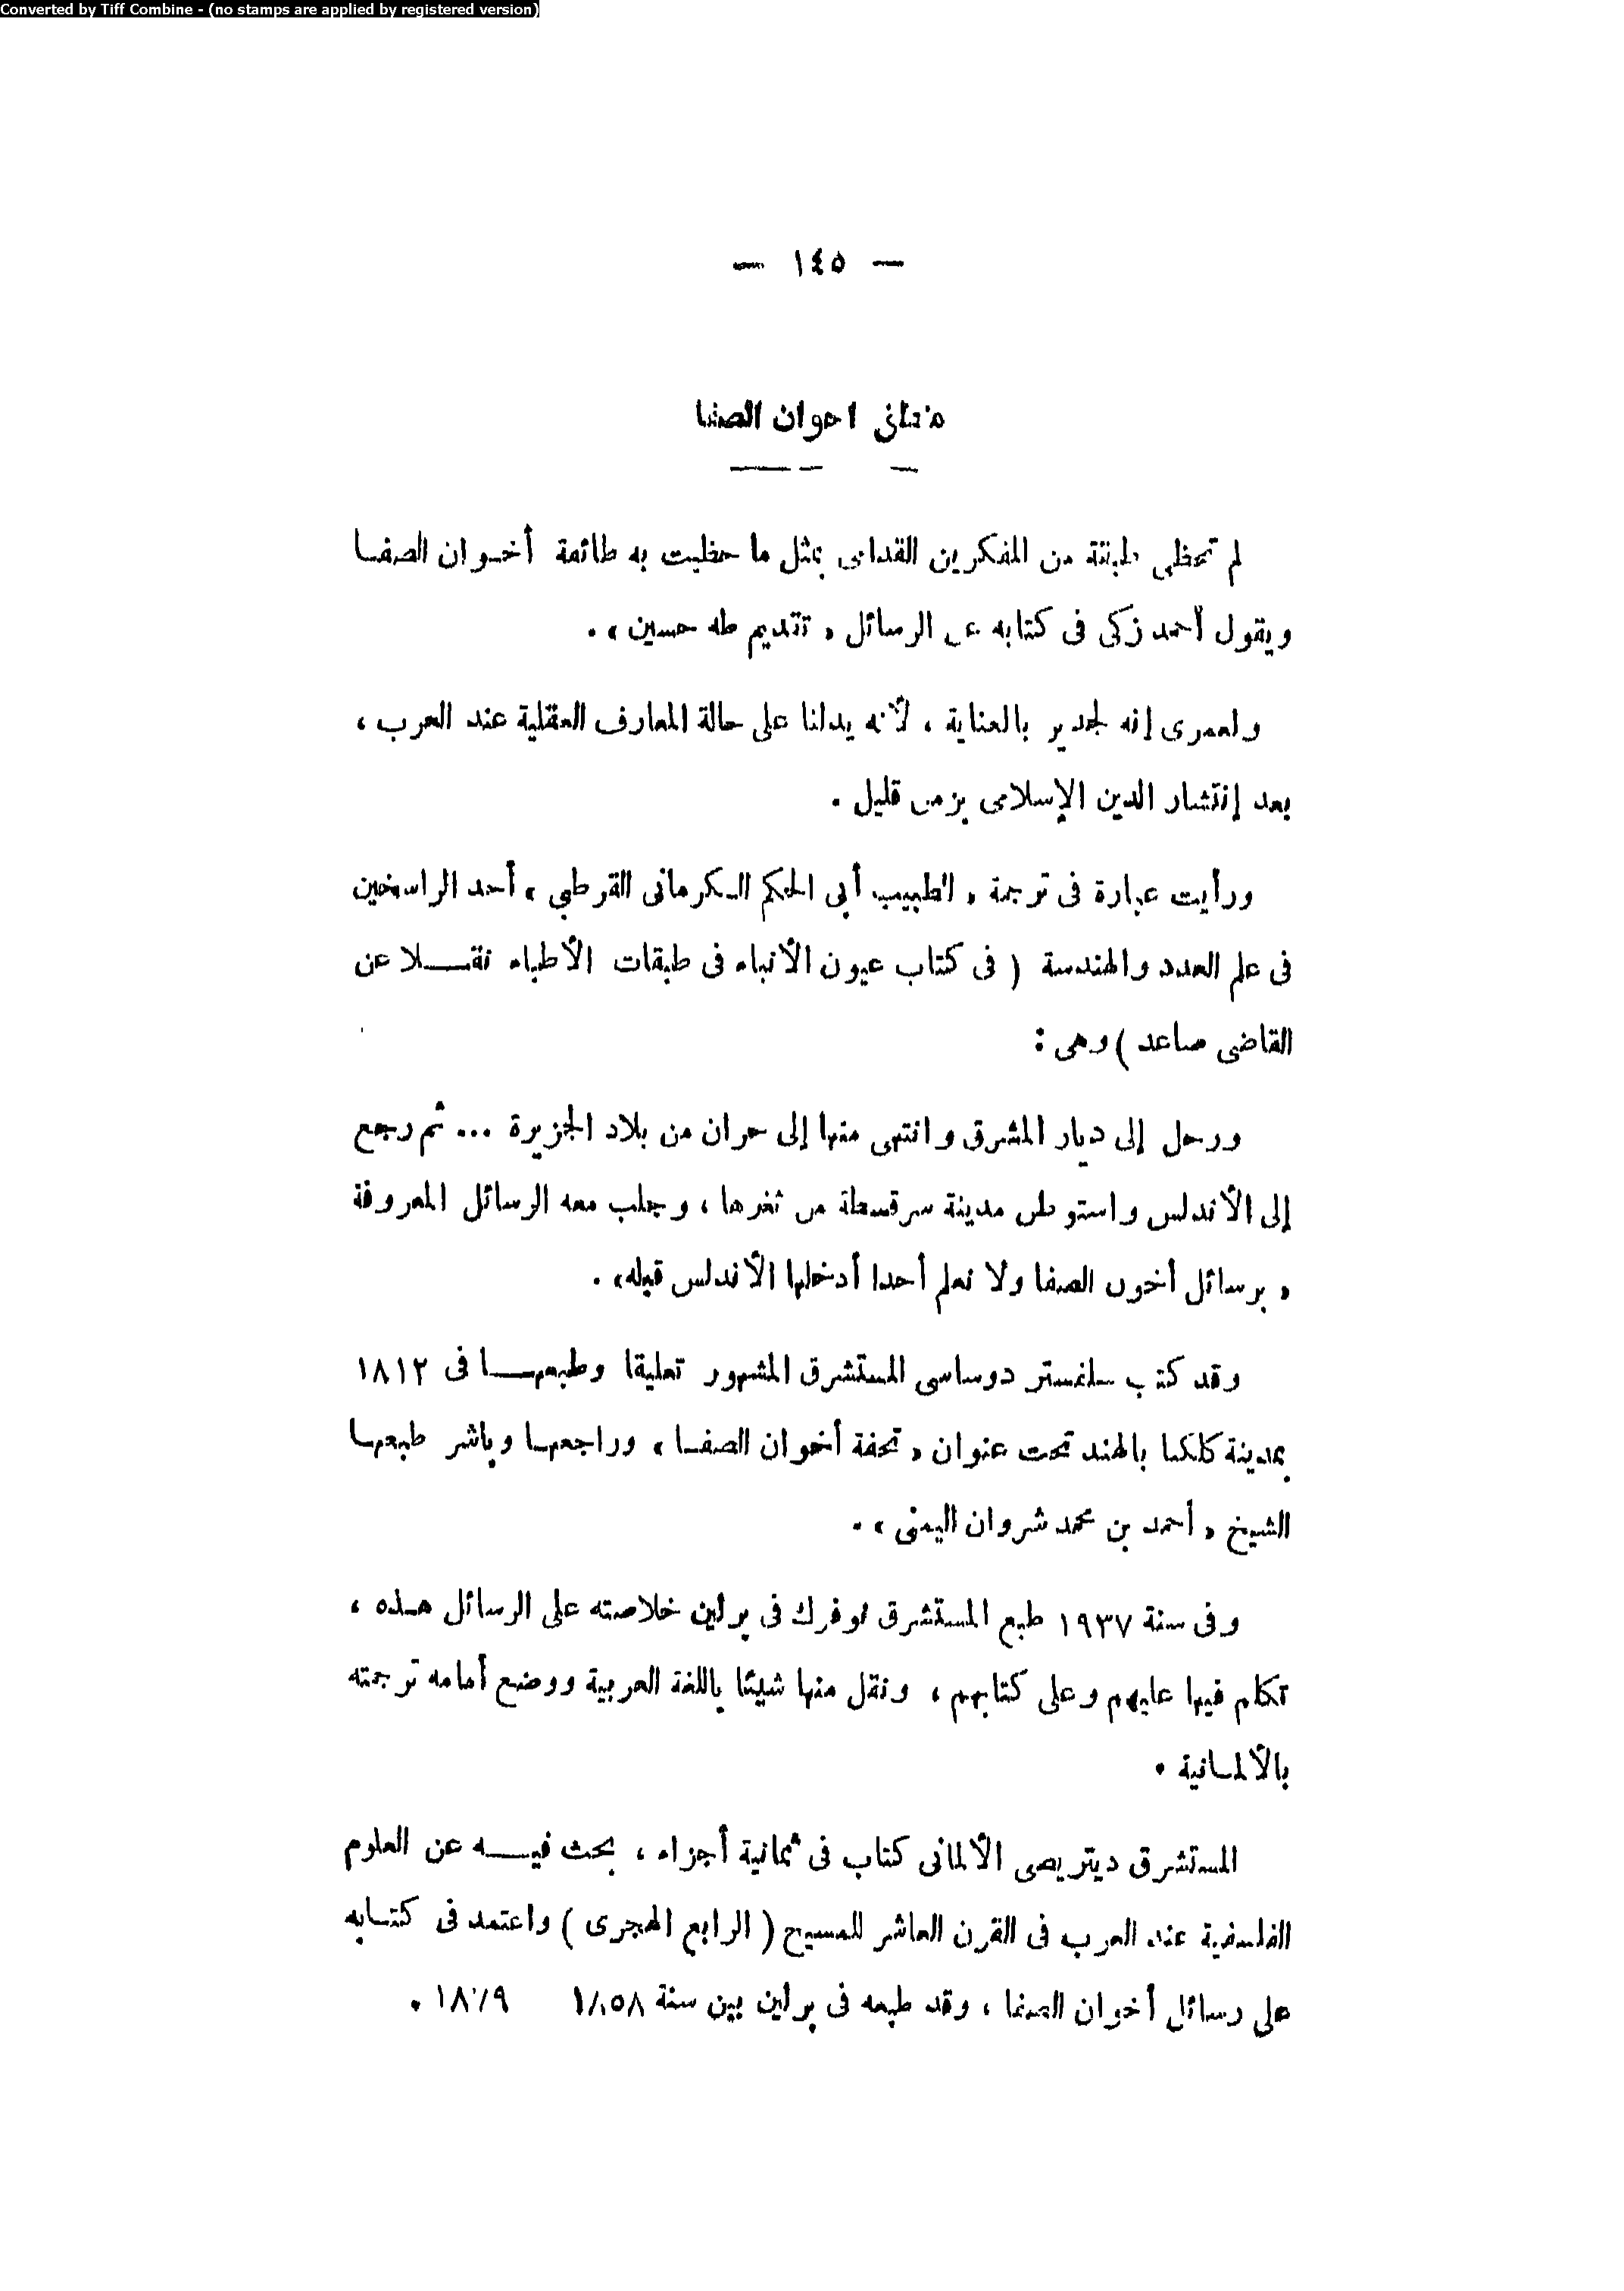 Converted by Tiff Combine - (no stamps are applied by registered version)
— ١٤٥ —
اخوان الصفا
لم تحظى طبقة من المفكرين القدامى بمثل ما حظيت به طائفة أخوان الصفا
ويقول أحمد زكى فى كتابه عن الرسائل « تقديم طه حسين » .
ولعمرى إنه لجدير بالعناية ، لأنه يدلنا على حالة المعارف العقلية عند العرب ،
بعد إنتشار الدين الإسلامى بزمن قليل .
ورأيت عبارة فى ترجمة « الطبيب أبى الحكم الكرمانى القرطبى » أحد الراسخين
فى علم العدد والهندسة ( فى كتاب عيون الأنباء فى طبقات الأطباء نقلا عن
القاضى صاعد ) وهى :
ورحل إلى ديار المشرق وانتهى منها إلى حران من بلاد الجزيرة ... ثم رجع
إلى الأندلس واستوطن مدينة سرقسطة من ثغرها ، وجلب معه الرسائل المعروفة
« برسائل أخون الصفا ولا نعلم أحدا أدخلها الأندلس قبله » .
وقد كتب سلفستر دوساسى المستشرق المشهور تعليقا وطبعها فى ١٨١٢
بمدينة كلكتا بالهند تحت عنوان « تحفة أخوان الصفا » وراجعها وباشر طبعها
الشيخ « أحمد بن محمد شروان اليمنى » .
وفى سنة ١٩٣٧ طبع المستشرق نوفرك فى برلين خلاصته على الرسائل هذه ،
تكلم فيها عليهم وعلى كتابهم ، ونقل منها شيئا باللغة العربية ووضع أمامه ترجمته
بالألمانية .
المستشرق ديتريصى الألمانى كتاب فى ثمانية أجزاء ، بحث فيه عن العلوم
الفلسفية عند العرب فى القرن العاشر للمسيح ( الرابع الهجرى ) واعتمد فى كتابه
على رسائل أخوان الصفا ، وقد طبعه فى برلين بين سنة ١٨٥٨